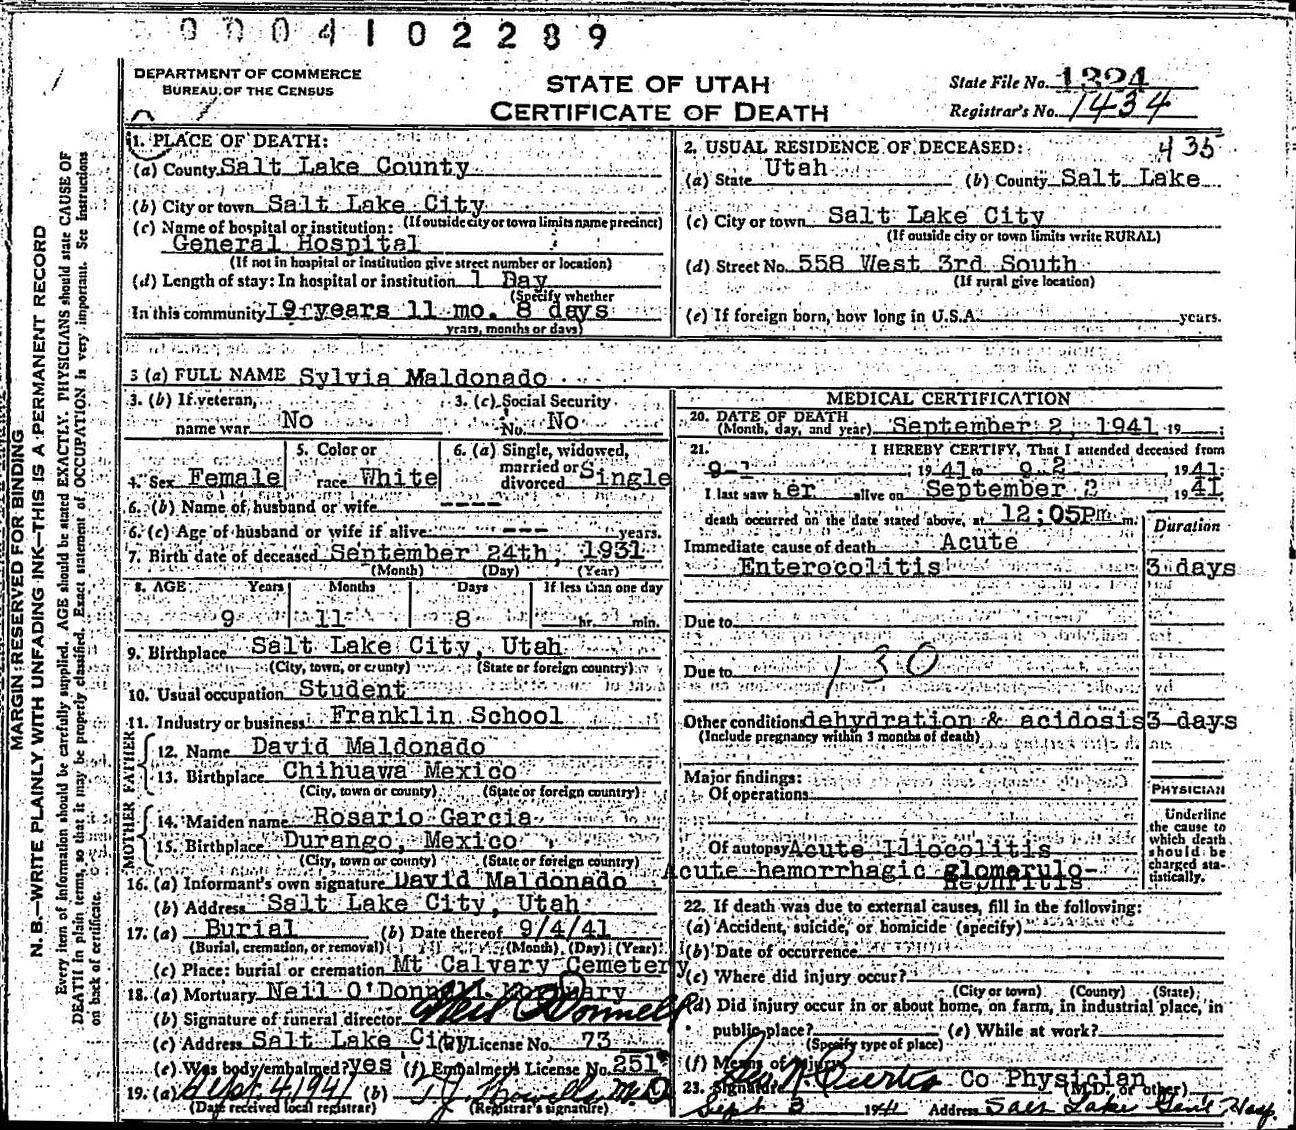 0004102289
DEPARTMENT OF COMMERCE
BUREAU OF THE CENSUS
STATE OF UTAH
CERTIFICATE OF DEATH
State File No. 1324
Registrar's No. 1434
1. PLACE OF DEATH:
(a) County Salt Lake County
(b) City or town Salt Lake City
(If outside city or town limits name precinct)
(c) Name of hospital or institution:
General Hospital
(If not in hospital or institution give street number or location)
(d) Length of stay: In hospital or institution 1 Day
(Specify whether
In this community 9 years 11 mo. 8 days
years, months or days)
2. USUAL RESIDENCE OF DECEASED: 435
(a) State Utah (b) County Salt Lake
(c) City or town Salt Lake City
(If outside city or town limits write RURAL)
(d) Street No. 558 West 3rd South
(If rural give location)
(e) If foreign born, how long in U.S.A. years.
3 (a) FULL NAME Sylvia Maldonado
3. (b) If veteran, name war No
3. (c) Social Security No. No
4. Sex Female
5. Color or race White
6. (a) Single, widowed, married or divorced Single
6. (b) Name of husband or wife ----
6. (c) Age of husband or wife if alive --- years.
7. Birth date of deceased September 24th, 1931
(Month) (Day) (Year)
8. AGE Years Months Days If less than one day
9 11 8 hr. min.
9. Birthplace Salt Lake City, Utah
(City, town, or county) (State or foreign country)
10. Usual occupation Student
11. Industry or business Franklin School
FATHER
12. Name David Maldonado
13. Birthplace Chihuawa Mexico
(City, town or county) (State or foreign country)
MOTHER
14. Maiden name Rosario Garcia
15. Birthplace Durango, Mexico
(City, town or county) (State or foreign country)
16. (a) Informant's own signature David Maldonado
(b) Address Salt Lake City, Utah
17. (a) Burial (b) Date thereof 9/4/41
(Burial, cremation, or removal) (Month) (Day) (Year)
(c) Place: burial or cremation Mt Calvary Cemetery
18. (a) Mortuary Neil O'Donnell Mortuary
(b) Signature of funeral director Neil O'Donnell
(c) Address Salt Lake City (d) License No. 73
(e) Was body embalmed? yes (f) Embalmer's License No. 251
19. (a) Sept. 4 1941 (b) T.J. Howells M.D.
(Date received local registrar) (Registrar's signature)
MEDICAL CERTIFICATION
20. DATE OF DEATH
(Month, day, and year) September 2, 1941 19
21. I HEREBY CERTIFY, That I attended deceased from
9-1 1941 to 9 2 1941
I last saw her alive on September 2 1941
death occurred on the date stated above, at 12;05Pm m.
Duration
Immediate cause of death Acute
Enterocolitis 3 days
Due to
Due to 130
Other conditions dehydration & acidosis 3 days
(Include pregnancy within 3 months of death)
Major findings:
Of operations
PHYSICIAN
Underline the cause to which death should be charged statistically.
Of autopsy Acute Iliocolitis
Acute hemorrhagic glomerulo-
Nephritis
22. If death was due to external causes, fill in the following:
(a) Accident, suicide, or homicide (specify)
(b) Date of occurrence
(c) Where did injury occur?
(City or town) (County) (State)
(d) Did injury occur in or about home, on farm, in industrial place, in
public place? (e) While at work?
(Specify type of place)
(f) Means of injury
23. Signature Curtis Co Physician
(M.D. or other)
Sept 3 1941 Address Salt Lake Gen'l Hosp.
MARGIN RESERVED FOR BINDING
N. B.—WRITE PLAINLY WITH UNFADING INK—THIS IS A PERMANENT RECORD
Every item of information should be carefully supplied. AGE should be stated EXACTLY. PHYSICIANS should state CAUSE OF
DEATH in plain terms, so that it may be properly classified. Exact statement of OCCUPATION is very important. See instructions
on back of certificate.